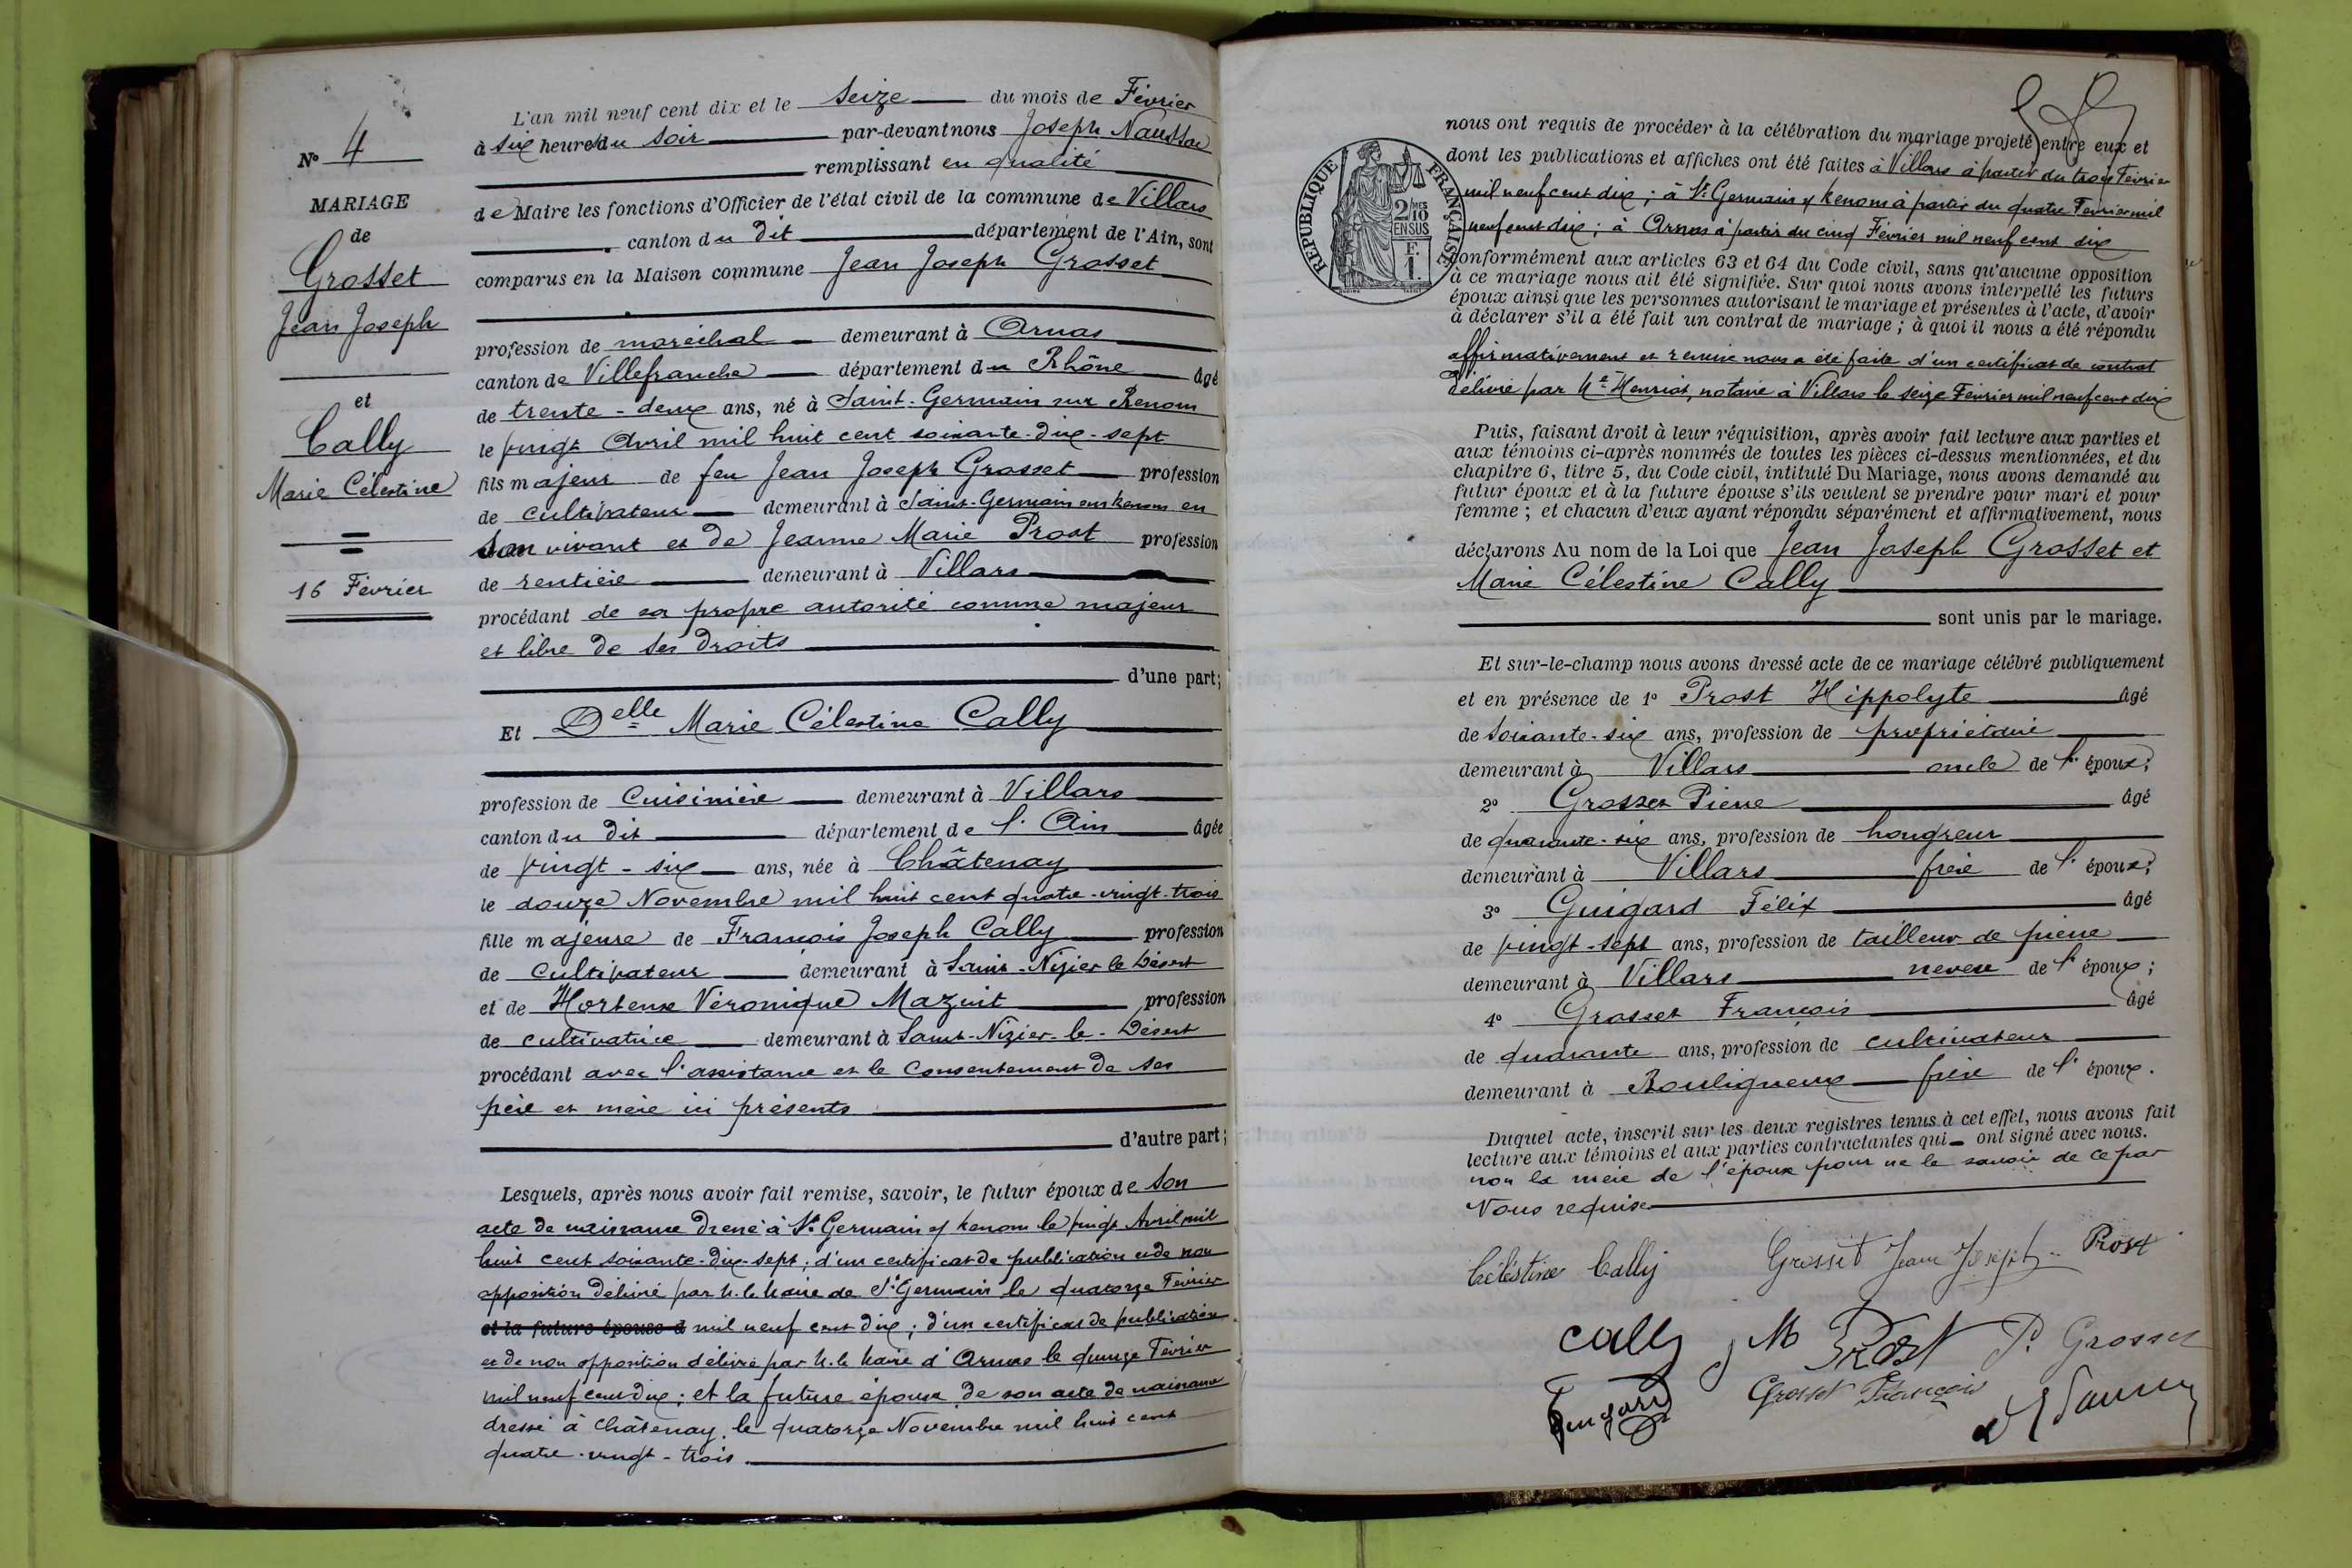 N° 4
MARIAGE
de
Grosset
Jean Joseph
et
Cally
Marie Célestine
16 Février
L'an mil neuf cent dix et le seize du mois de Février
à six heures du soir par-devant nous Joseph Naussac
remplissant en qualité
de Maire les fonctions d'Officier de l'état civil de la commune de Villars
canton du dit département de l'Ain, sont
comparus en la Maison commune Jean Joseph Grosset
profession de maréchal demeurant à Arnas
canton de Villefranche département du Rhône âgé
de trente-deux ans, né à Saint-Germain sur Renom
le vingt Avril mil huit cent soixante-dix-sept
fils majeur de feu Jean Joseph Grosset profession
de cultivateur demeurant à Saint-Germain sur Renom en
son vivant et de Jeanne Marie Prost profession
de rentière demeurant à Villars
procédant de sa propre autorité comme majeur
et libre de ses droits
d'une part;
Et Delle Marie Célestine Cally
profession de Cuisinière demeurant à Villars
canton du dit département de l'Ain âgée
de vingt-six ans, née à Châtenay
le douze Novembre mil huit cent quatre-vingt-trois
fille majeure de François Joseph Cally profession
de Cultivateur demeurant à Saint-Nizier le Désert
et de Hortense Véronique Mazuit profession
de cultivatrice demeurant à Saint-Nizier-le-Désert
procédant avec l'assistance et le consentement de ses
père et mère ici présents
d'autre part;
Lesquels, après nous avoir fait remise, savoir, le futur époux de son
acte de naissance dressé à St Germain s/ Renom le vingt Avril mil
huit cent soixante-dix-sept; d'un certificat de publication et de non
opposition délivré par M. le Maire de St Germain le quatorze Février
et la future épouse d mil neuf cent dix; d'un certificat de publication
et de non opposition délivré par M. le Maire d'Arnas le quinze Février
mil neuf cent dix; et la future épouse de son acte de naissance
dressé à Châtenay, le quatorze Novembre mil huit cent
quatre-vingt-trois.
RÉPUBLIQUE FRANÇAISE
2/10 MES
EN SUS
F
1.
nous ont requis de procéder à la célébration du mariage projeté entre eux et
dont les publications et affiches ont été faites à Villars à partir du trois Février
mil neuf cent dix; à St Germain s/ Renom à partir du quatre Février mil
neuf cent dix; à Arnas à partir du cinq Février mil neuf cent dix
conformément aux articles 63 et 64 du Code civil, sans qu'aucune opposition
à ce mariage nous ait été signifiée. Sur quoi nous avons interpellé les futurs
époux ainsi que les personnes autorisant le mariage et présentes à l'acte, d'avoir
à déclarer s'il a été fait un contrat de mariage; à quoi il nous a été répondu
affirmativement et remise nous a été faite d'un certificat de contrat
délivré par Me Henriot, notaire à Villars le seize Février mil neuf cent dix
Puis, faisant droit à leur réquisition, après avoir fait lecture aux parties et
aux témoins ci-après nommés de toutes les pièces ci-dessus mentionnées, et du
chapitre 6, titre 5, du Code civil, intitulé Du Mariage, nous avons demandé au
futur époux et à la future épouse s'ils veulent se prendre pour mari et pour
femme; et chacun d'eux ayant répondu séparément et affirmativement, nous
déclarons Au nom de la Loi que Jean Joseph Grosset et
Marie Célestine Cally
sont unis par le mariage.
Et sur-le-champ nous avons dressé acte de ce mariage célébré publiquement
et en présence de 1° Prost Hippolyte âgé
de soixante-six ans, profession de propriétaire
demeurant à Villars oncle de l'époux;
2° Grosset Pierre âgé
de quarante-six ans, profession de hongreur
demeurant à Villars frère de l'époux;
3° Guigard Félix âgé
de vingt-sept ans, profession de tailleur de pierre
demeurant à Villars neveu de l'époux;
4° Grosset François âgé
de quarante ans, profession de cultivateur
demeurant à Bouligneux frère de l'époux.
Duquel acte, inscrit sur les deux registres tenus à cet effet, nous avons fait
lecture aux témoins et aux parties contractantes qui ont signé avec nous.
non la mère de l'épouse pour ne le savoir de ce par
Nous requise
Célestine Cally Grosset Jean Joseph Prost
Cally J M Prost P. Grosset
Guigard Grosset François